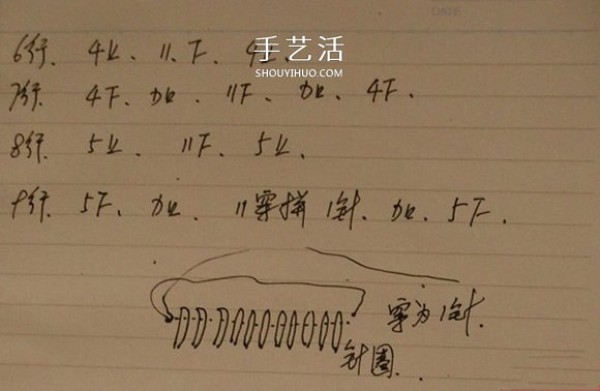 6行. 4上. 11.下. 4上.
手艺活
SHOUYIHUO.COM
7行. 4下. 加上. 11下. 加上. 4下.
8行. 5上. 11下. 5上.
9行. 5下. 加上. 11穿拼1针. 加上. 5下.
穿为1针.
针圈.